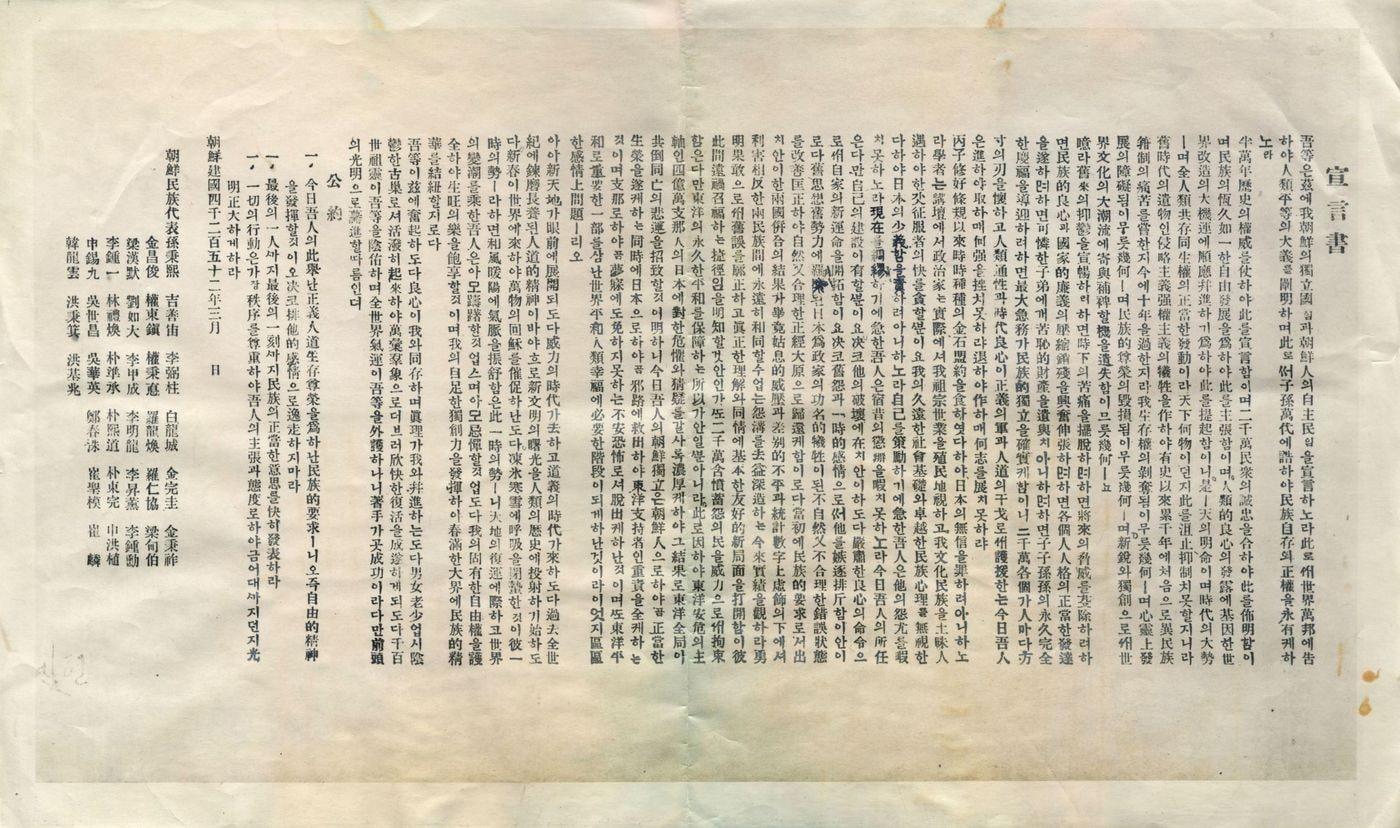 宣言書
吾等은玆에我朝鮮의獨立國임과朝鮮人의自主民임을宣言하노라此로써世界萬邦에告
하야人類平等의大義를闡明하며此로써子孫萬代에誥하야民族自存의正權을永有케하
노라
半萬年歷史의權威를仗하야此를宣言함이며二千萬民衆의誠忠을合하야此를佈明함이
며民族의恆久如一한自由發展을爲하야此를主張함이며人類的良心의發露에基因한世
界改造의大機運에順應幷進하기爲하야此를提起함이니是ㅣ天의明命이며時代의大勢
ㅣ며全人類共存同生權의正當한發動이라天下何物이던지此를沮止抑制치못할지니라
舊時代의遺物인侵略主義强權主義의犧牲을作하야有史以來累千年에처음으로異民族
箝制의痛苦를嘗한지今에十年을過한지라我生存權의剝奪됨이무릇幾何ㅣ며心靈上發
展의障礙됨이무릇幾何ㅣ며民族的尊榮의毁損됨이무릇幾何ㅣ며新銳와獨創으로써世
界文化의大潮流에寄與補裨할機緣을遺失함이무릇幾何ㅣ뇨
噫라舊來의抑鬱을宣暢하려하면時下의苦痛을擺脫하려하면將來의脅威를芟除하려하
면民族的良心과國家的廉義의壓縮銷殘을興奮伸張하려하면各個人格의正當한發達
을遂하려하면可憐한子弟에게苦恥的財產을遺與치아니하려하면子子孫孫의永久完全
한慶福을導迎하려하면最大急務가民族的獨立을確實케함이니二千萬各個가人마다方
寸의刃을懷하고人類通性과時代良心이正義의軍과人道의干戈로써護援하는今日吾人
은進하야取하매何强을挫치못하랴退하야作하매何志를展치못하랴
丙子修好條規以來時時種種의金石盟約을食하엿다하야日本의無信을罪하려아니하노
라學者는講壇에서政治家는實際에서我祖宗世業을殖民地視하고我文化民族을土昧人
遇하야한갓征服者의快를貪할뿐이오我의久遠한社會基礎와卓犖한民族心理를無視한
다하야日本의少義함을責하려아니하노라自己를策勵하기에急한吾人은他의怨尤를暇
치못하노라現在를綢繆하기에急한吾人은宿昔의懲辨을暇치못하노라今日吾人의所任
은다만自己의建設이有할뿐이오決코他의破壞에在치안이하도다嚴肅한良心의命令으
로써自家의新運命을開拓함이오決코舊怨과一時的感情으로써他를嫉逐排斥함이안이
로다舊思想舊勢力에羈縻된日本爲政家의功名的犧牲이된不自然又不合理한錯誤狀態
를改善匡正하야自然又合理한正經大原으로歸還케함이로다當初에民族的要求로서出
치안이한兩國倂合의結果가畢竟姑息的威壓과差別的不平과統計數字上虛飾의下에서
利害相反한兩民族間에永遠히和同할수업는怨溝를去益深造하는今來實績을觀하라勇
明果敢으로써舊誤를廓正하고眞正한理解와同情에基本한友好的新局面을打開함이彼
此間遠禍召福하는捷徑임을明知할것안인가또二千萬含憤蓄怨의民을威力으로써拘束
함은다만東洋의永久한平和를保障하는所以가안일뿐아니라此로因하야東洋安危의主
軸인四億萬支那人의日本에對한危懼와猜疑를갈사록濃厚케하야그結果로東洋全局이
共倒同亡의悲運을招致할것이明하니今日吾人의朝鮮獨立은朝鮮人으로하야곰正當한
生榮을遂케하는同時에日本으로하야곰邪路에서出하야東洋支持者인重責을全케하는
것이며支那로하야곰夢寐에도免하지못하는不安恐怖로서脫出케하는것이며또東洋平
和로重要한一部를삼는世界平和人類幸福에必要한階段이되게하는것이라이엇지區區
한感情上問題ㅣ리오
아아新天地가眼前에展開되도다威力의時代가去하고道義의時代가來하도다過去全世
紀에鍊磨長養된人道的精神이바야흐로新文明의曙光을人類의歷史에投射하기始하도
다新春이世界에來하야萬物의回穌를催促하는도다凍氷寒雪에呼吸을閉蟄한것이彼一
時의勢ㅣ라하면和風暖陽에氣脈을振舒함은此一時의勢ㅣ니天地의復運에際하고世界
의變潮를乘한吾人은아모躊躇할것업스며아모忌憚할것업도다我의固有한自由權을護
全하야生旺의樂을飽享할것이며我의自足한獨創力을發揮하야春滿한大界에民族的精
華를結紐할지로다
吾等이玆에奮起하도다良心이我와同存하며眞理가我와幷進하는도다男女老少업시陰
鬱한古巢로서活潑히起來하야萬彙羣象으로더브러欣快한復活을成遂하게되도다千百
世祖靈이吾等을陰佑하며全世界氣運이吾等을外護하나니著手가곳成功이라다만前頭
의光明으로驀進할따름인더
公約
一、今日吾人의此擧는正義人道生存尊榮을爲하는民族的要求ㅣ니오즉自由的精神
을發揮할것이오決코排他的感情으로逸走하지마라
一、最後의一人까지最後의一刻까지民族의正當한意思를快히發表하라
一、一切의行動은가장秩序를尊重하야吾人의主張과態度로하야금어대까지던지光
明正大하게하라
朝鮮建國四千二百五十二年三月 日
朝鮮民族代表
孫秉熙 吉善宙 李弼柱 白龍城 金完圭 金秉祚
金昌俊 權東鎭 權秉悳 羅龍煥 羅仁協 梁甸伯
梁漢默 劉如大 李甲成 李明龍 李昇薰 李鍾勳
李鍾一 林禮煥 朴準承 朴熙道 朴東完 申洪植
申錫九 吳世昌 吳華英 鄭春洙 崔聖模 崔麟
韓龍雲 洪秉箕 洪基兆